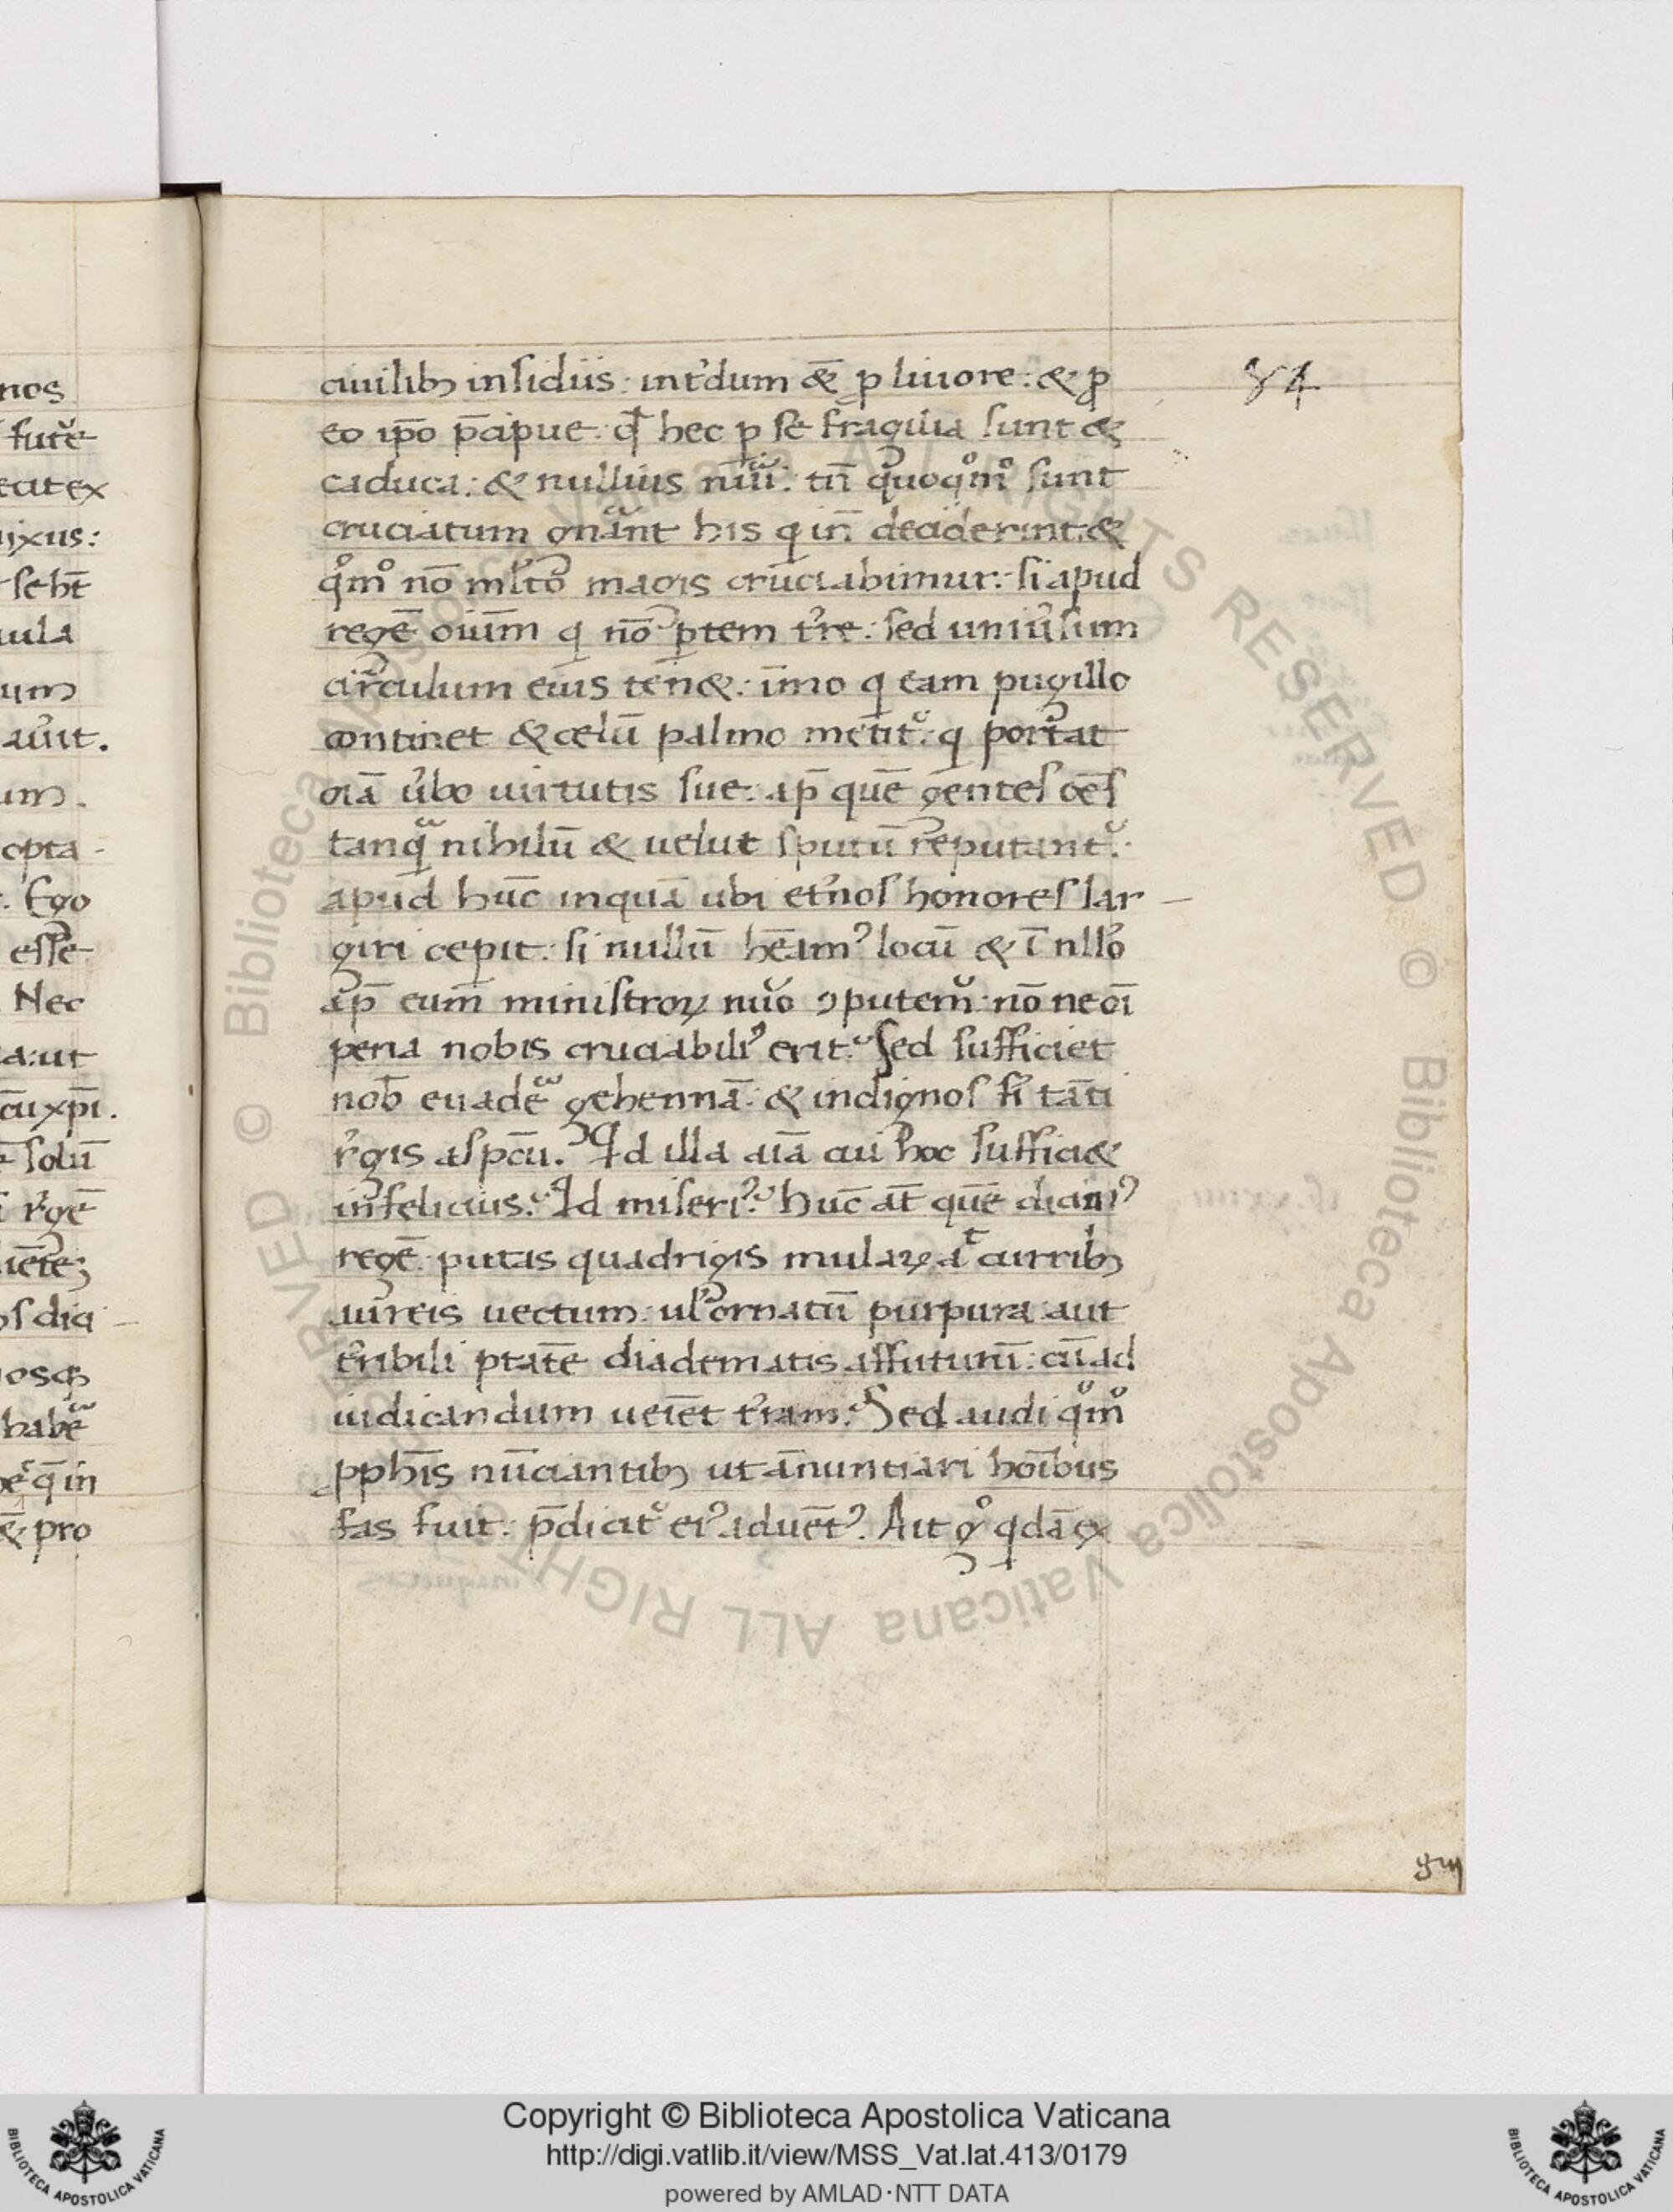 nos
futˀe
ecit ex
uixus:
se hn̄t
uula
um
auˀit.
um.
opta-
Ego
esse
Nec
a: ut
cū xp̄i.
solū
rˀgē
iētez
os dici
osqȝ
habē
q̄ in
& pro
ciuilibȝ insidiis: intˀdum &̄ ꝓ liuore: & ꝓ
eo ip̄o p̄cipue: qđ hec ꝑ se fragilia sunt &
caduca: & nullius nūi: tn̄ quoqͦmͦ sunt
cruciatum gnānt his q in̄ deciderint: &
qͦmͦ nō ml̓to magis cruciabimur: si apud
regē oium̄ q nō ꝑtem tˀre: sed uniuˀsum
circulum eius ten&: īmo q eam pugillo
continet & celū palmo metit᷑: q portat
oīa uˀbo uirtutis sue: ap̄ quē gentes oēs
tanqͣ nihilū & uelut sputū reputant᷑:
apud hūc inquā ubi etˀnos honores lar-
giri cepit: si nullū hēamꝰ locū & ī nllo
ap̄ eum ministroꝝ nuͦo ꝯputem᷑: nō ne oī
pena nobis cruciabiliꝰ erit? Sed sufficiet
nob̄ euadē gehennā: & indignos fi̓ tāti
rˀgis aspcū. Id illa aīa cui hoc suffici&
infelicius? Id miseriꝰ? Hūc at̄ quē dicimꝰ
regē: putas quadrigis mulaꝝ aͭ curribȝ
aureis uectum: ul̓ ornatū purpura: aut
tˀribili ptātē diadematis affuturū: cū ad
iudicandum ueīet tˀram? Sed audi qͦmͦ
ꝓph̄is nūciantibȝ ut ānuntiari hoībus
fas fuit: p̄dicit᷑ eiꝰ aduētꝰ. Ait gͦ qdā ex
84
Copyright © Biblioteca Apostolica Vaticana
http://digi.vatlib.it/view/MSS_Vat.lat.413/0179
powered by AMLAD·NTT DATA
BIBLIOTECA APOSTOLICA VATICANA
BIBLIOTECA APOSTOLICA VATICANA